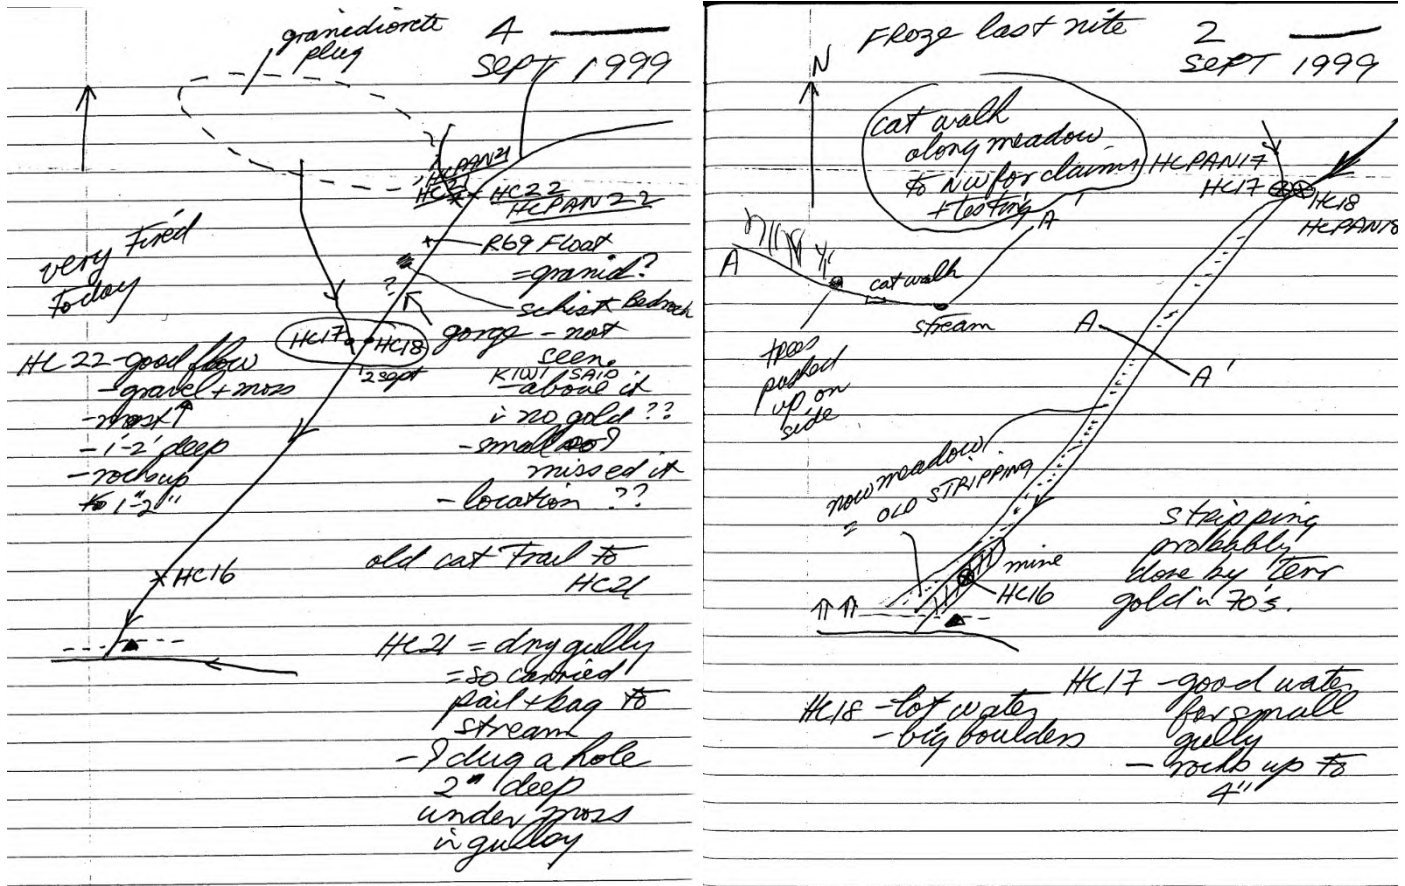 granediorete
plug
4
SEPT 1999
HCPAN21
HC21
HC22
HCPAN22
very Tired
Today
R69 Float
= granid?
schist Bedrock
?
gorge - not
seen.
KIWI SAID
- above it
is no gold ??
- small so I
missed it
- location ??
HC17
HC18
2 sept
HC 22 - good flow
- gravel + moss
- most ↑
- 1'-2' deep
- rocks up
to 1"-2"
HC16
old cat Trail to
HC21
HC21 = dry gully
= so carried
pail + bag to
stream
- I dug a hole
2" deep
under moss
in gulley
FROZE last nite
2
SEPT 1999
N
cat walk
along meadow
to NW for claims
+ testing
HCPAN17
HC17
HC18
HCPAN18
A
A'
cat walk
stream
trees
pushed
up on
side
A
A'
now meadow
= OLD STRIPPING
mine
HC16
stripping
probably
done by Tenn
gold in 70's.
HC18 - lot water
- big boulders
HC17 - good water
for small
gully
- rocks up to
4"